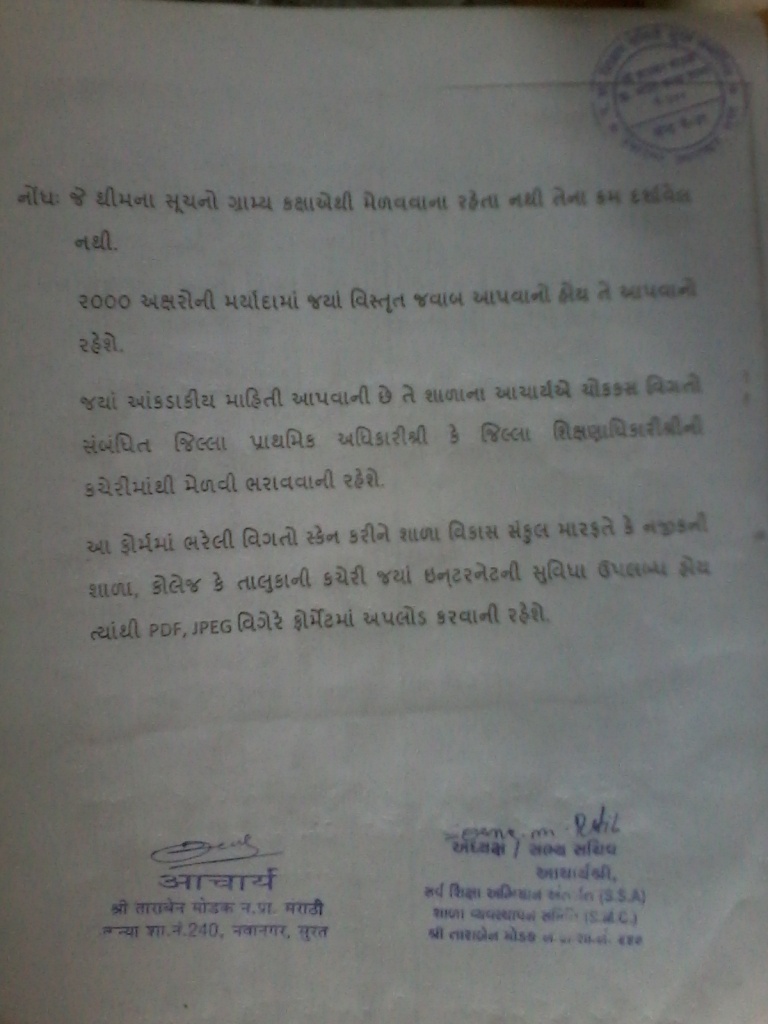 નોંધઃ જે થીમના સૂચનો ગ્રામ્ય કક્ષાએથી મેળવવાના રહેતા નથી તેના ક્રમ દર્શાવેલ
નથી.
૨૦૦૦ અક્ષરોની મર્યાદામાં જયાં વિસ્તૃત જવાબ આપવાનો હોય તે આપવાનો
રહેશે.
જયાં આંકડાકીય માહિતી આપવાની છે તે શાળાના આચાર્યએ ચોકકસ વિગતો
સંબંધિત જિલ્લા પ્રાથમિક અધિકારીશ્રી કે જિલ્લા શિક્ષણાધિકારીશ્રીની
કચેરીમાંથી મેળવી ભરાવવાની રહેશે.
આ ફોર્મમાં ભરેલી વિગતો સ્કેન કરીને શાળા વિકાસ સંકુલ મારફતે કે નજીકની
શાળા, કોલેજ કે તાલુકાની કચેરી જયાં ઇન્ટરનેટની સુવિધા ઉપલબ્ધ હોય
ત્યાંથી PDF, JPEG વિગેરે ફોર્મેટમાં અપલોડ કરવાની રહેશે.
आचार्य
શ્રી તારાબેન મોડક ન.પ્રા. મરાઠી
કન્યા શા.નં.240, નવાનગર, સુરત
અધ્યક્ષ / સભ્ય સચિવ
આચાર્યશ્રી,
સર્વ શિક્ષા અભિયાન (S.S.A)
શાળા વ્યવસ્થાપન સમિતિ (S.M.C.)
શ્રી તારાબેન મોડક